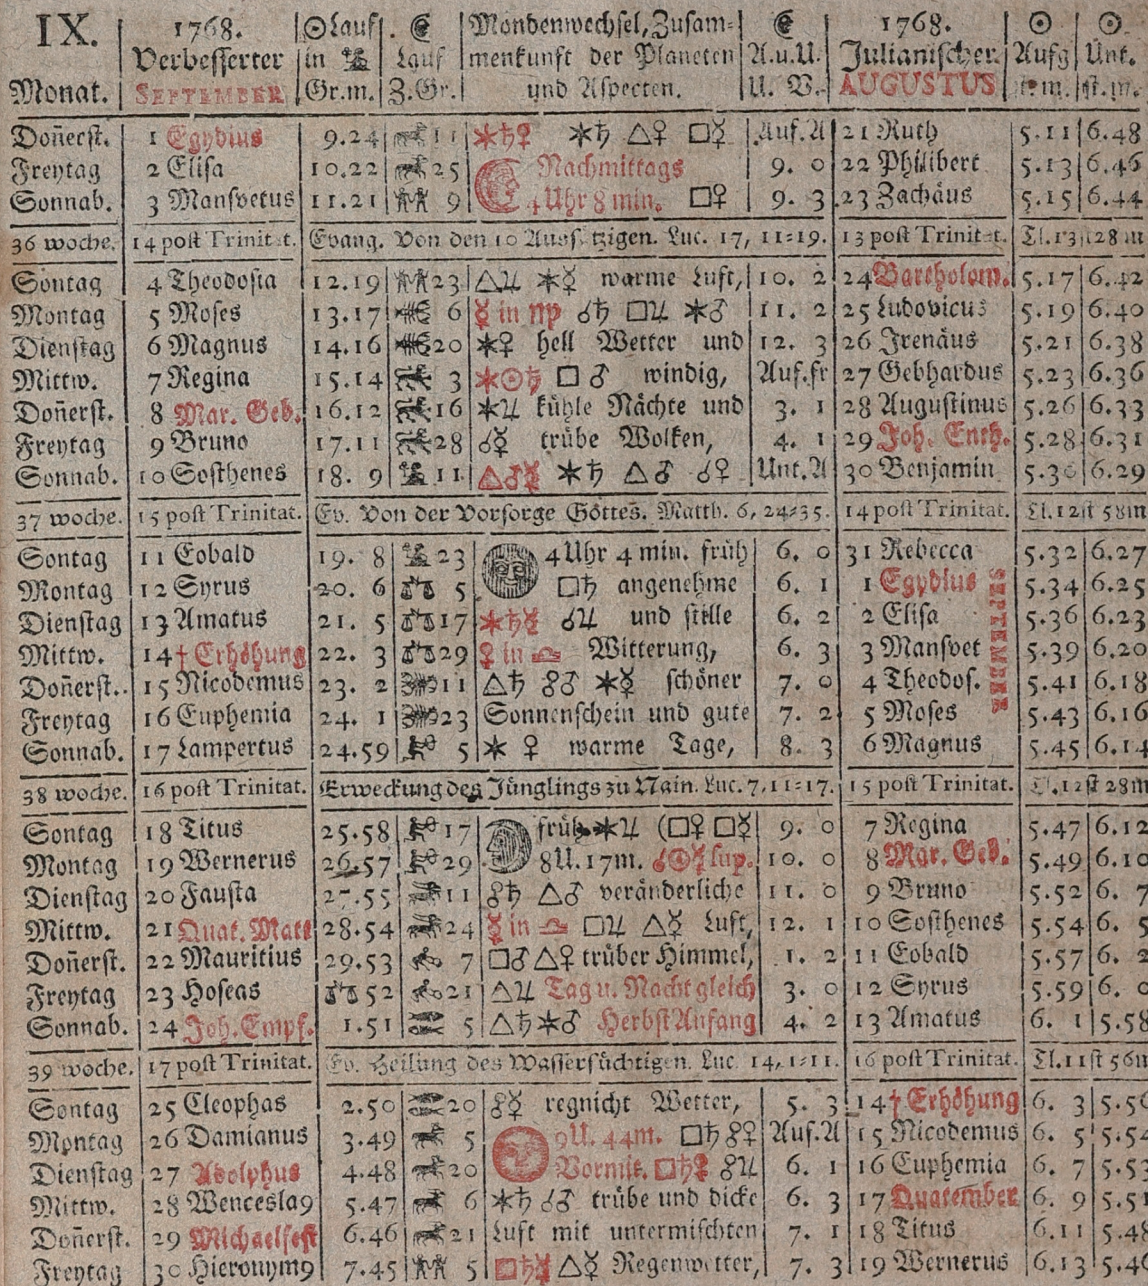 IX. 1768. ☉Lauf ☾ Mondenwechsel, Zusam- ☾ 1768. ☉ ☉
Verbesserter in Lauf menkunft der Planeten A.u.U. Julianischer Aufg Unt.
Monat. SEPTEMBER Gr.m. Z.Gr. und Aspecten. U. V. AUGUSTUS st.m.
Doñerst. 1 Egydius 9.24 11 ✶♄☿ ✶♄ △♀ □☿ Auf.A 21 Ruth 5.11 6.48
Freytag 2 Elisa 10.22 25 Nachmittags 9. 0 22 Philibert 5.13 6.46
Sonnab. 3 Mansvetus 11.21 9 4 Uhr 8 min. □♀ 9. 3 23 Zachäus 5.15 6.44
36 woche. 14 post Trinitat. Evang. Von den 10 Aussätzigen. Luc. 17, 11-19. 13 post Trinitat. Tl.13st 28m
Sontag 4 Theodosia 12.19 23 △♃ ✶☿ warme Luft, 10. 2 24 Bartholom. 5.17 6.42
Montag 5 Moses 13.17 6 ☿ in ♍ ☌♄ □♃ ✶♂ 11. 2 25 Ludovicus 5.19 6.40
Dienstag 6 Magnus 14.16 20 ✶♀ hell Wetter und 12. 3 26 Irenäus 5.21 6.38
Mittw. 7 Regina 15.14 3 ✶☉♄ □ ♂ windig, Auf.fr 27 Gebhardus 5.23 6.36
Doñerst. 8 Mar. Geb. 16.12 16 ✶♃ kühle Nächte und 3. 1 28 Augustinus 5.26 6.33
Freytag 9 Bruno 17.11 28 ☌☿ trübe Wolken, 4. 1 29 Joh. Enth. 5.28 6.31
Sonnab. 10 Sosthenes 18. 9 11 △♂☿ ✶♄ △♂ ☌♀ Unt.A 30 Benjamin 5.30 6.29
37 woche. 15 post Trinitat. Ev. Von der Vorsorge Gottes. Matth. 6, 24-35. 14 post Trinitat. Tl.12st 58m
Sontag 11 Eobald 19. 8 23 4 Uhr 4 min. früh 6. 0 31 Rebecca 5.32 6.27
Montag 12 Syrus 20. 6 5 □♄ angenehme 6. 1 1 Egydius 5.34 6.25
Dienstag 13 Amatus 21. 5 17 ✶♄☿ ☌♃ und stille 6. 2 2 Elisa 5.36 6.23
Mittw. 14 † Erhöhung 22. 3 29 ♀ in ♎ Witterung, 6. 3 3 Mansvet 5.39 6.20
Doñerst. 15 Nicodemus 23. 2 11 △♄ ☍♂ ✶☿ schöner 7. 0 4 Theodos. 5.41 6.18
Freytag 16 Euphemia 24. 1 23 Sonnenschein und gute 7. 2 5 Moses 5.43 6.16
Sonnab. 17 Lampertus 24.59 5 ✶ ♀ warme Tage, 8. 3 6 Magnus 5.45 6.14
SEPTEMBER
38 woche. 16 post Trinitat. Erweckung des Jünglings zu Nain. Luc. 7, 11-17. 15 post Trinitat. Tl.12st 28m
Sontag 18 Titus 25.58 17 früh ✶♃ (□♀ □☿ 9. 0 7 Regina 5.47 6.12
Montag 19 Wernerus 26.57 29 8U. 17m. ☌☉☿ sup. 10. 0 8 Mar. Geb. 5.49 6.10
Dienstag 20 Fausta 27.55 11 ☍♄ △♂ veränderliche 11. 0 9 Bruno 5.52 6. 7
Mittw. 21 Quat. Matt 28.54 24 ☿ in ♎ □♃ △☿ Luft, 12. 1 10 Sosthenes 5.54 6. 5
Doñerst. 22 Mauritius 29.53 7 □♂ △♀ trüber Himmel, 1. 2 11 Eobald 5.57 6. 2
Freytag 23 Hoseas ♎ 52 21 △♃ Tag u. Nacht gleich 3. 0 12 Syrus 5.59 6. 0
Sonnab. 24 Joh. Empf. 1.51 5 △♄ ✶♂ Herbst Anfang 4. 2 13 Amatus 6. 1 5.58
39 woche. 17 post Trinitat. Ev. Heilung des Wassersüchtigen. Luc. 14, 1-11. 16 post Trinitat. Tl.11st 56m
Sontag 25 Cleophas 2.50 20 ☍☿ regnicht Wetter, 5. 3 14 † Erhöhung 6. 3 5.56
Montag 26 Damianus 3.49 5 9U. 44m. □♄ ☍♀ Auf.A 15 Nicodemus 6. 5 5.54
Dienstag 27 Adolphus 4.48 20 Vormit. □♄♀ ☍♃ 6. 1 16 Euphemia 6. 7 5.53
Mittw. 28 Wenceslaꝰ 5.47 6 ✶♄ ☌♂ trübe und dicke 6. 3 17 Quatember 6. 9 5.51
Doñerst. 29 Michaelfest 6.46 21 Luft mit untermischten 7. 1 18 Titus 6.11 5.48
Freytag 30 Hieronymꝰ 7.45 5 □♄☿ △☿ Regenwetter, 7. 3 19 Wernerus 6.13